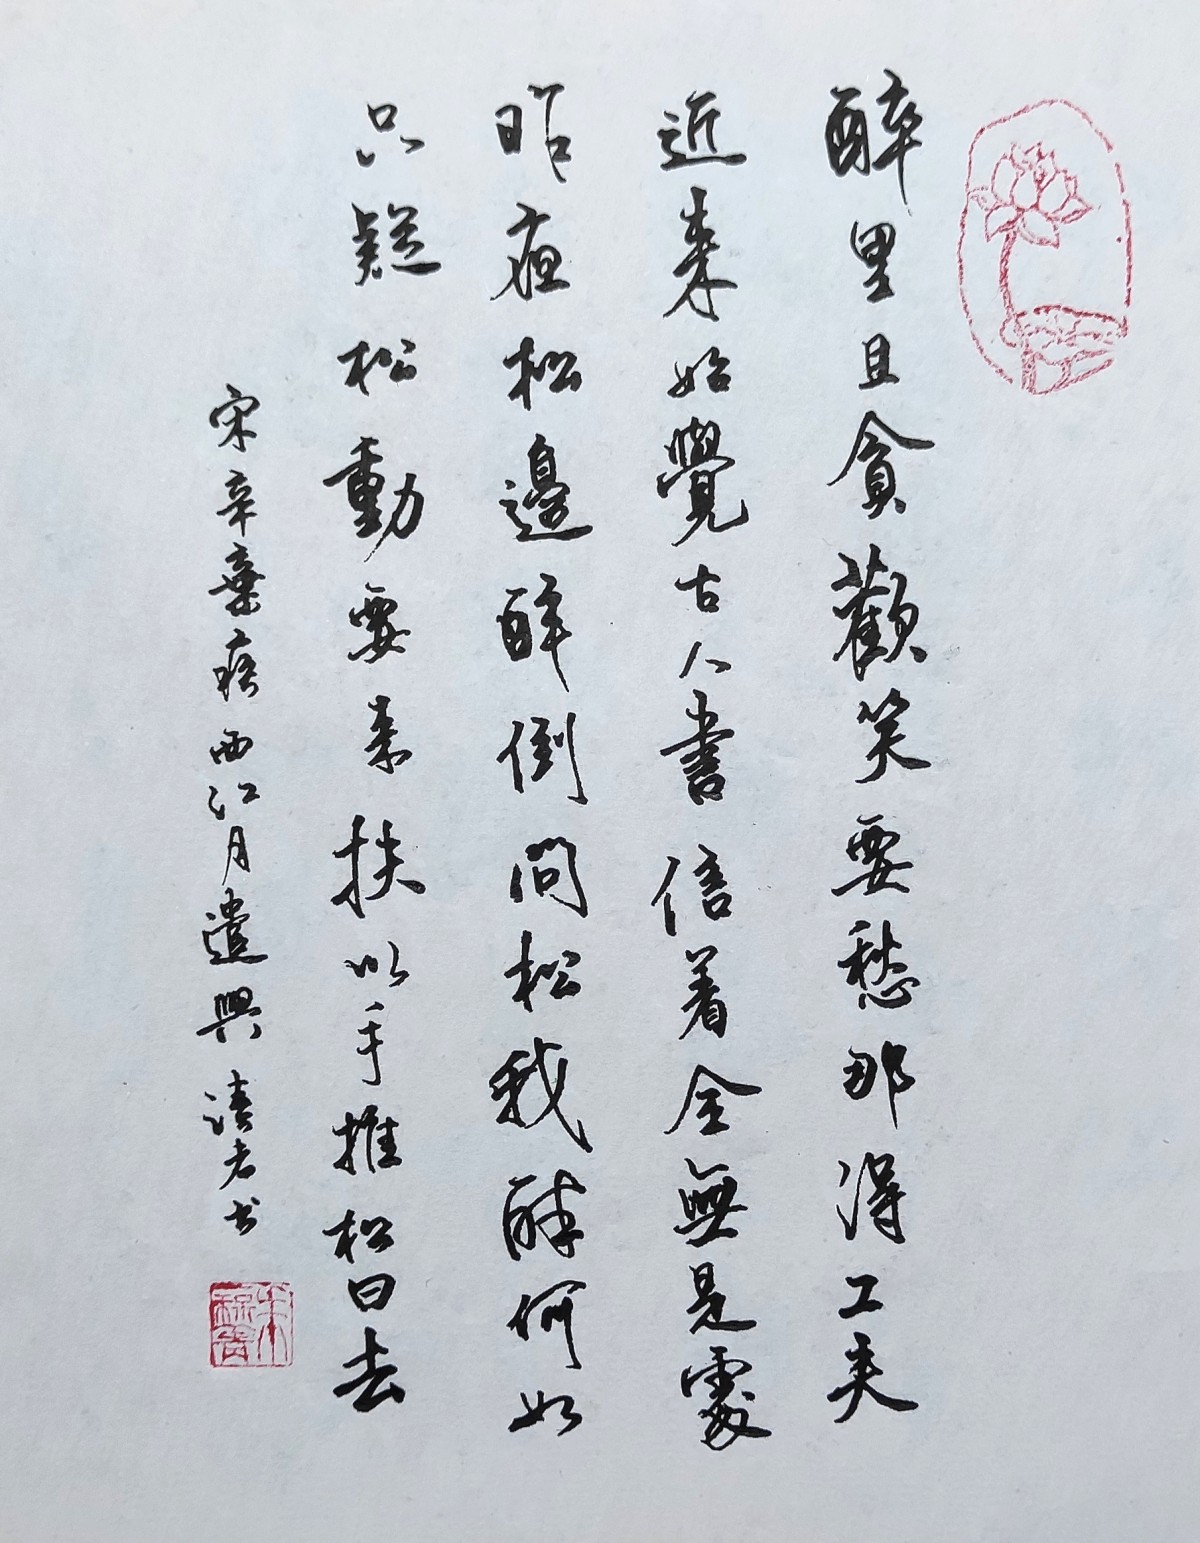 醉里且貪歡笑要愁那得工夫
近来始覺古人書信着全無是處
昨夜松邊醉倒問松我醉何如
只疑松動要来扶以手推松曰去
宋辛棄疾西江月遣興 清老书